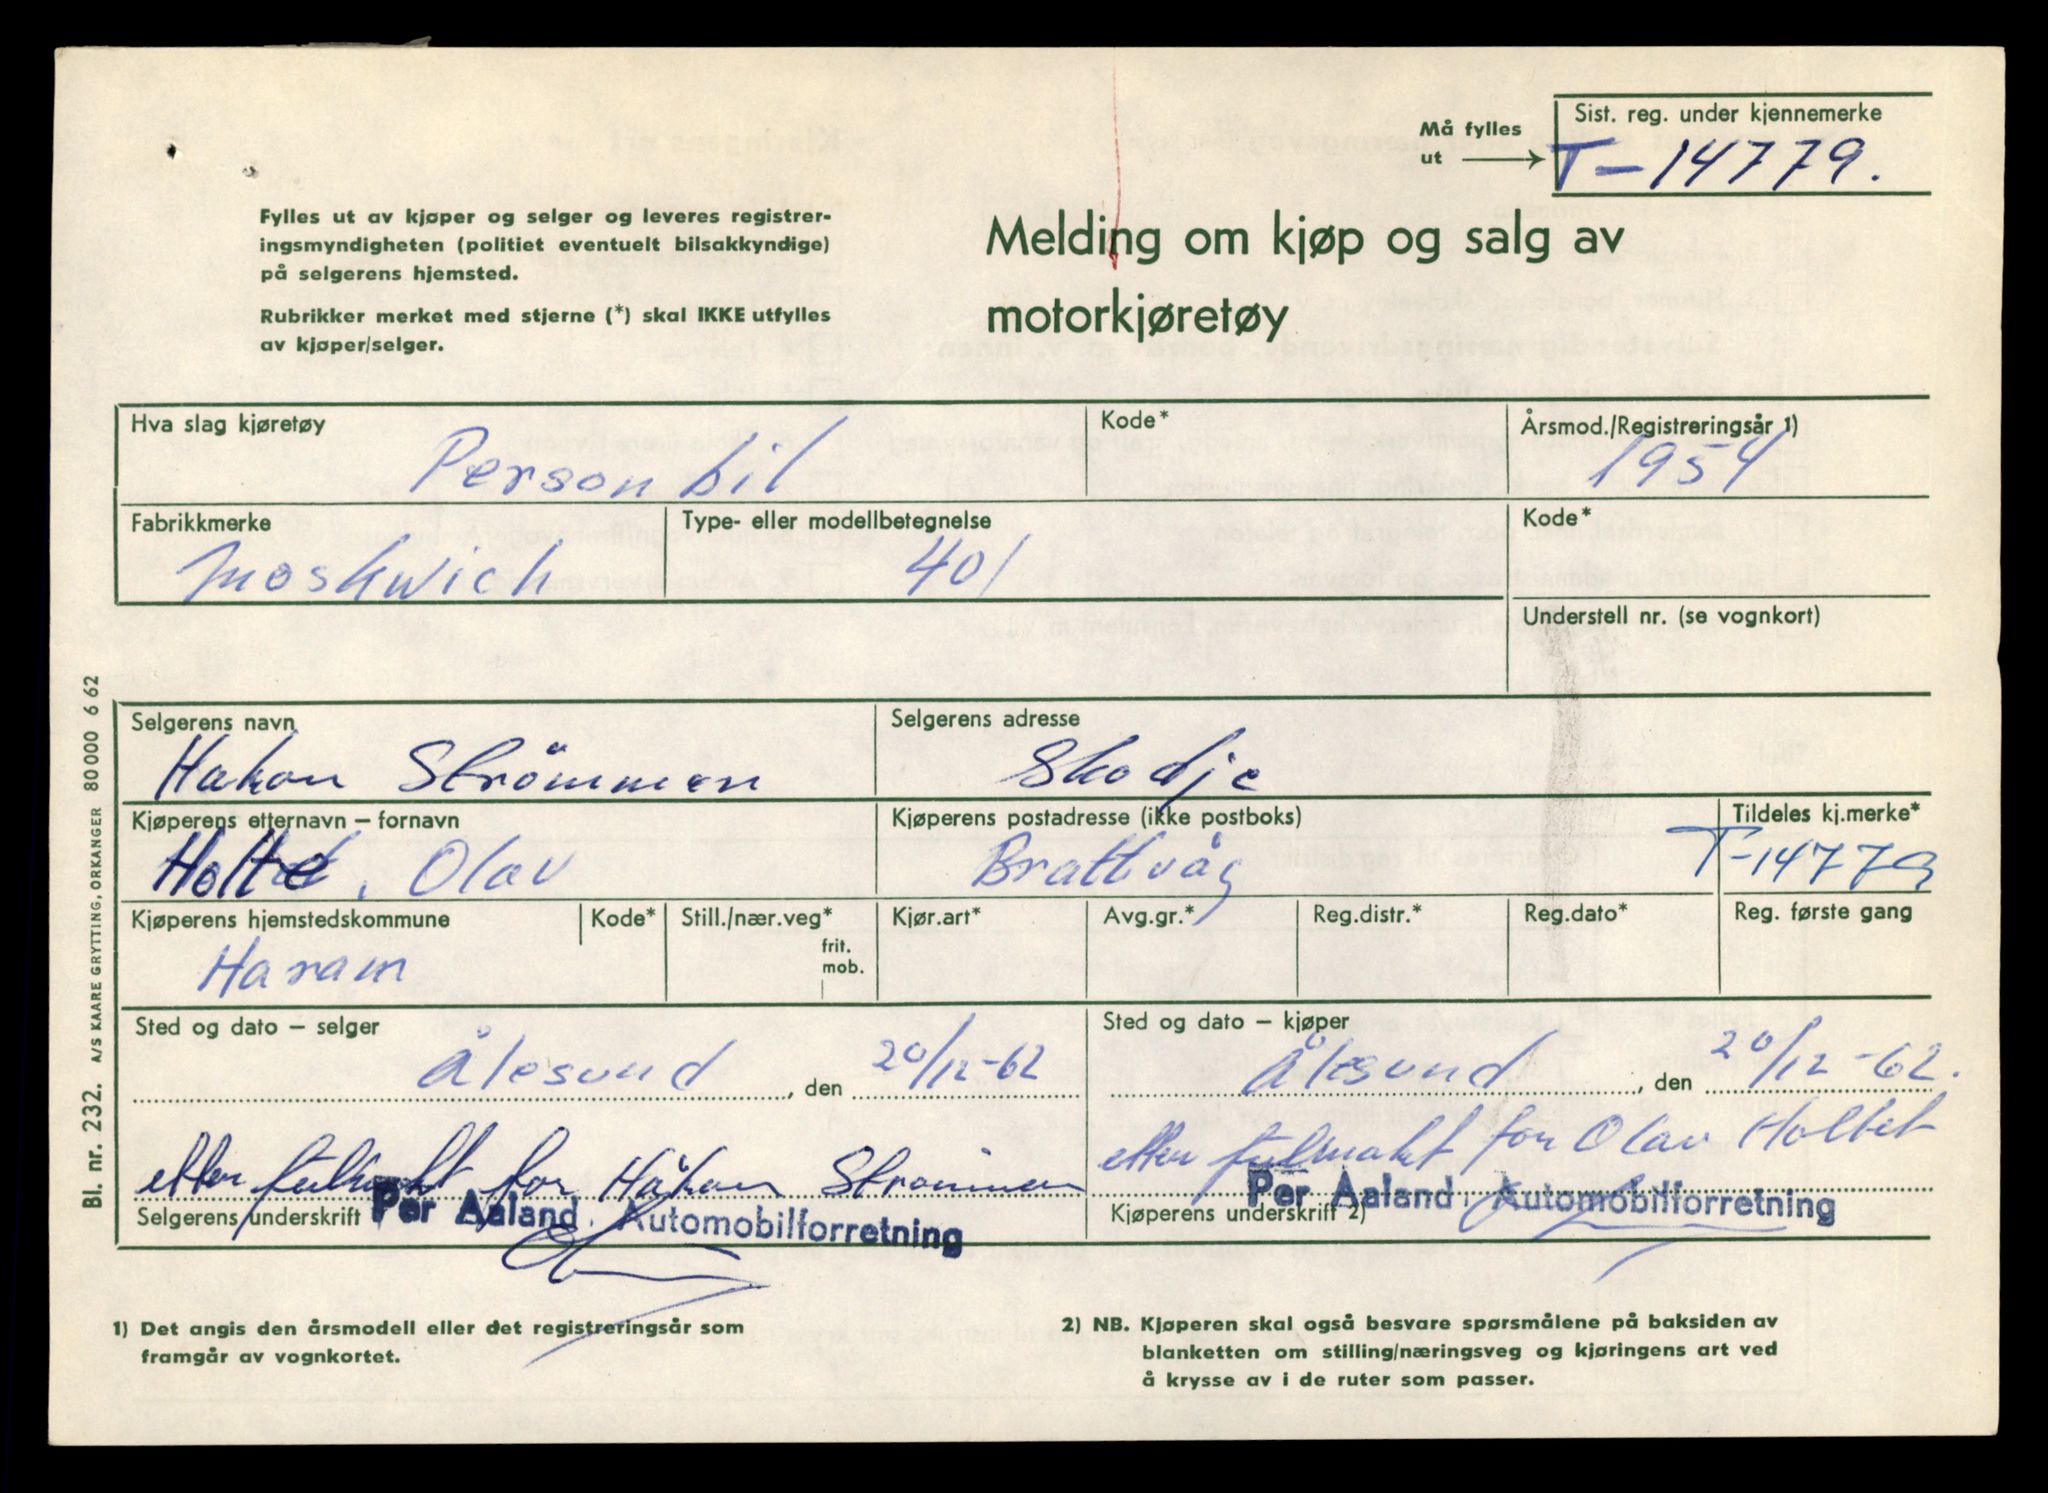 Må fylles
ut
Sist. reg. under kjennemerke
T-14779.
Fylles ut av kjøper og selger og leveres registrer-
ingsmyndigheten (politiet eventuelt bilsakkyndige)
på selgerens hjemsted.
Rubrikker merket med stjerne (*) skal IKKE utfylles
av kjøper/selger.
Melding om kjøp og salg av
motorkjøretøy
Hva slag kjøretøy
Personbil
Kode*
Årsmod./Registreringsår 1)
1954
Fabrikkmerke
Moskwich
Type- eller modellbetegnelse
401
Kode*
Understell nr. (se vognkort)
Selgerens navn
Hakon Strömmen
Selgerens adresse
Skodje
Kjøperens etternavn – fornavn
Holte, Olav
Kjøperens postadresse (ikke postboks)
Brattvåg
Tildeles kj.merke*
T-14779
Kjøperens hjemstedskommune
Haram
Kode*
Still./nær.veg*
frit.
mob.
Kjør.art*
Avg.gr.*
Reg.distr.*
Reg.dato*
Reg. første gang
Sted og dato – selger
Ålesund, den 20/12-62
Sted og dato – kjøper
Ålesund, den 20/12-62.
etter fulmakt for Håkon Strømmen
Selgerens underskrift
Per Aaland, Automobilforretning
etter fulmakt for Olav Holtet
Kjøperens underskrift 2)
Per Aaland, Automobilforretning
1) Det angis den årsmodell eller det registreringsår som
framgår av vognkortet.
2) NB. Kjøperen skal også besvare spørsmålene på baksiden av
blanketten om stilling/næringsveg og kjøringens art ved
å krysse av i de ruter som passer.
Bl. nr. 232. A/S KAARE GRYTTING, ORKANGER 80000 6 62